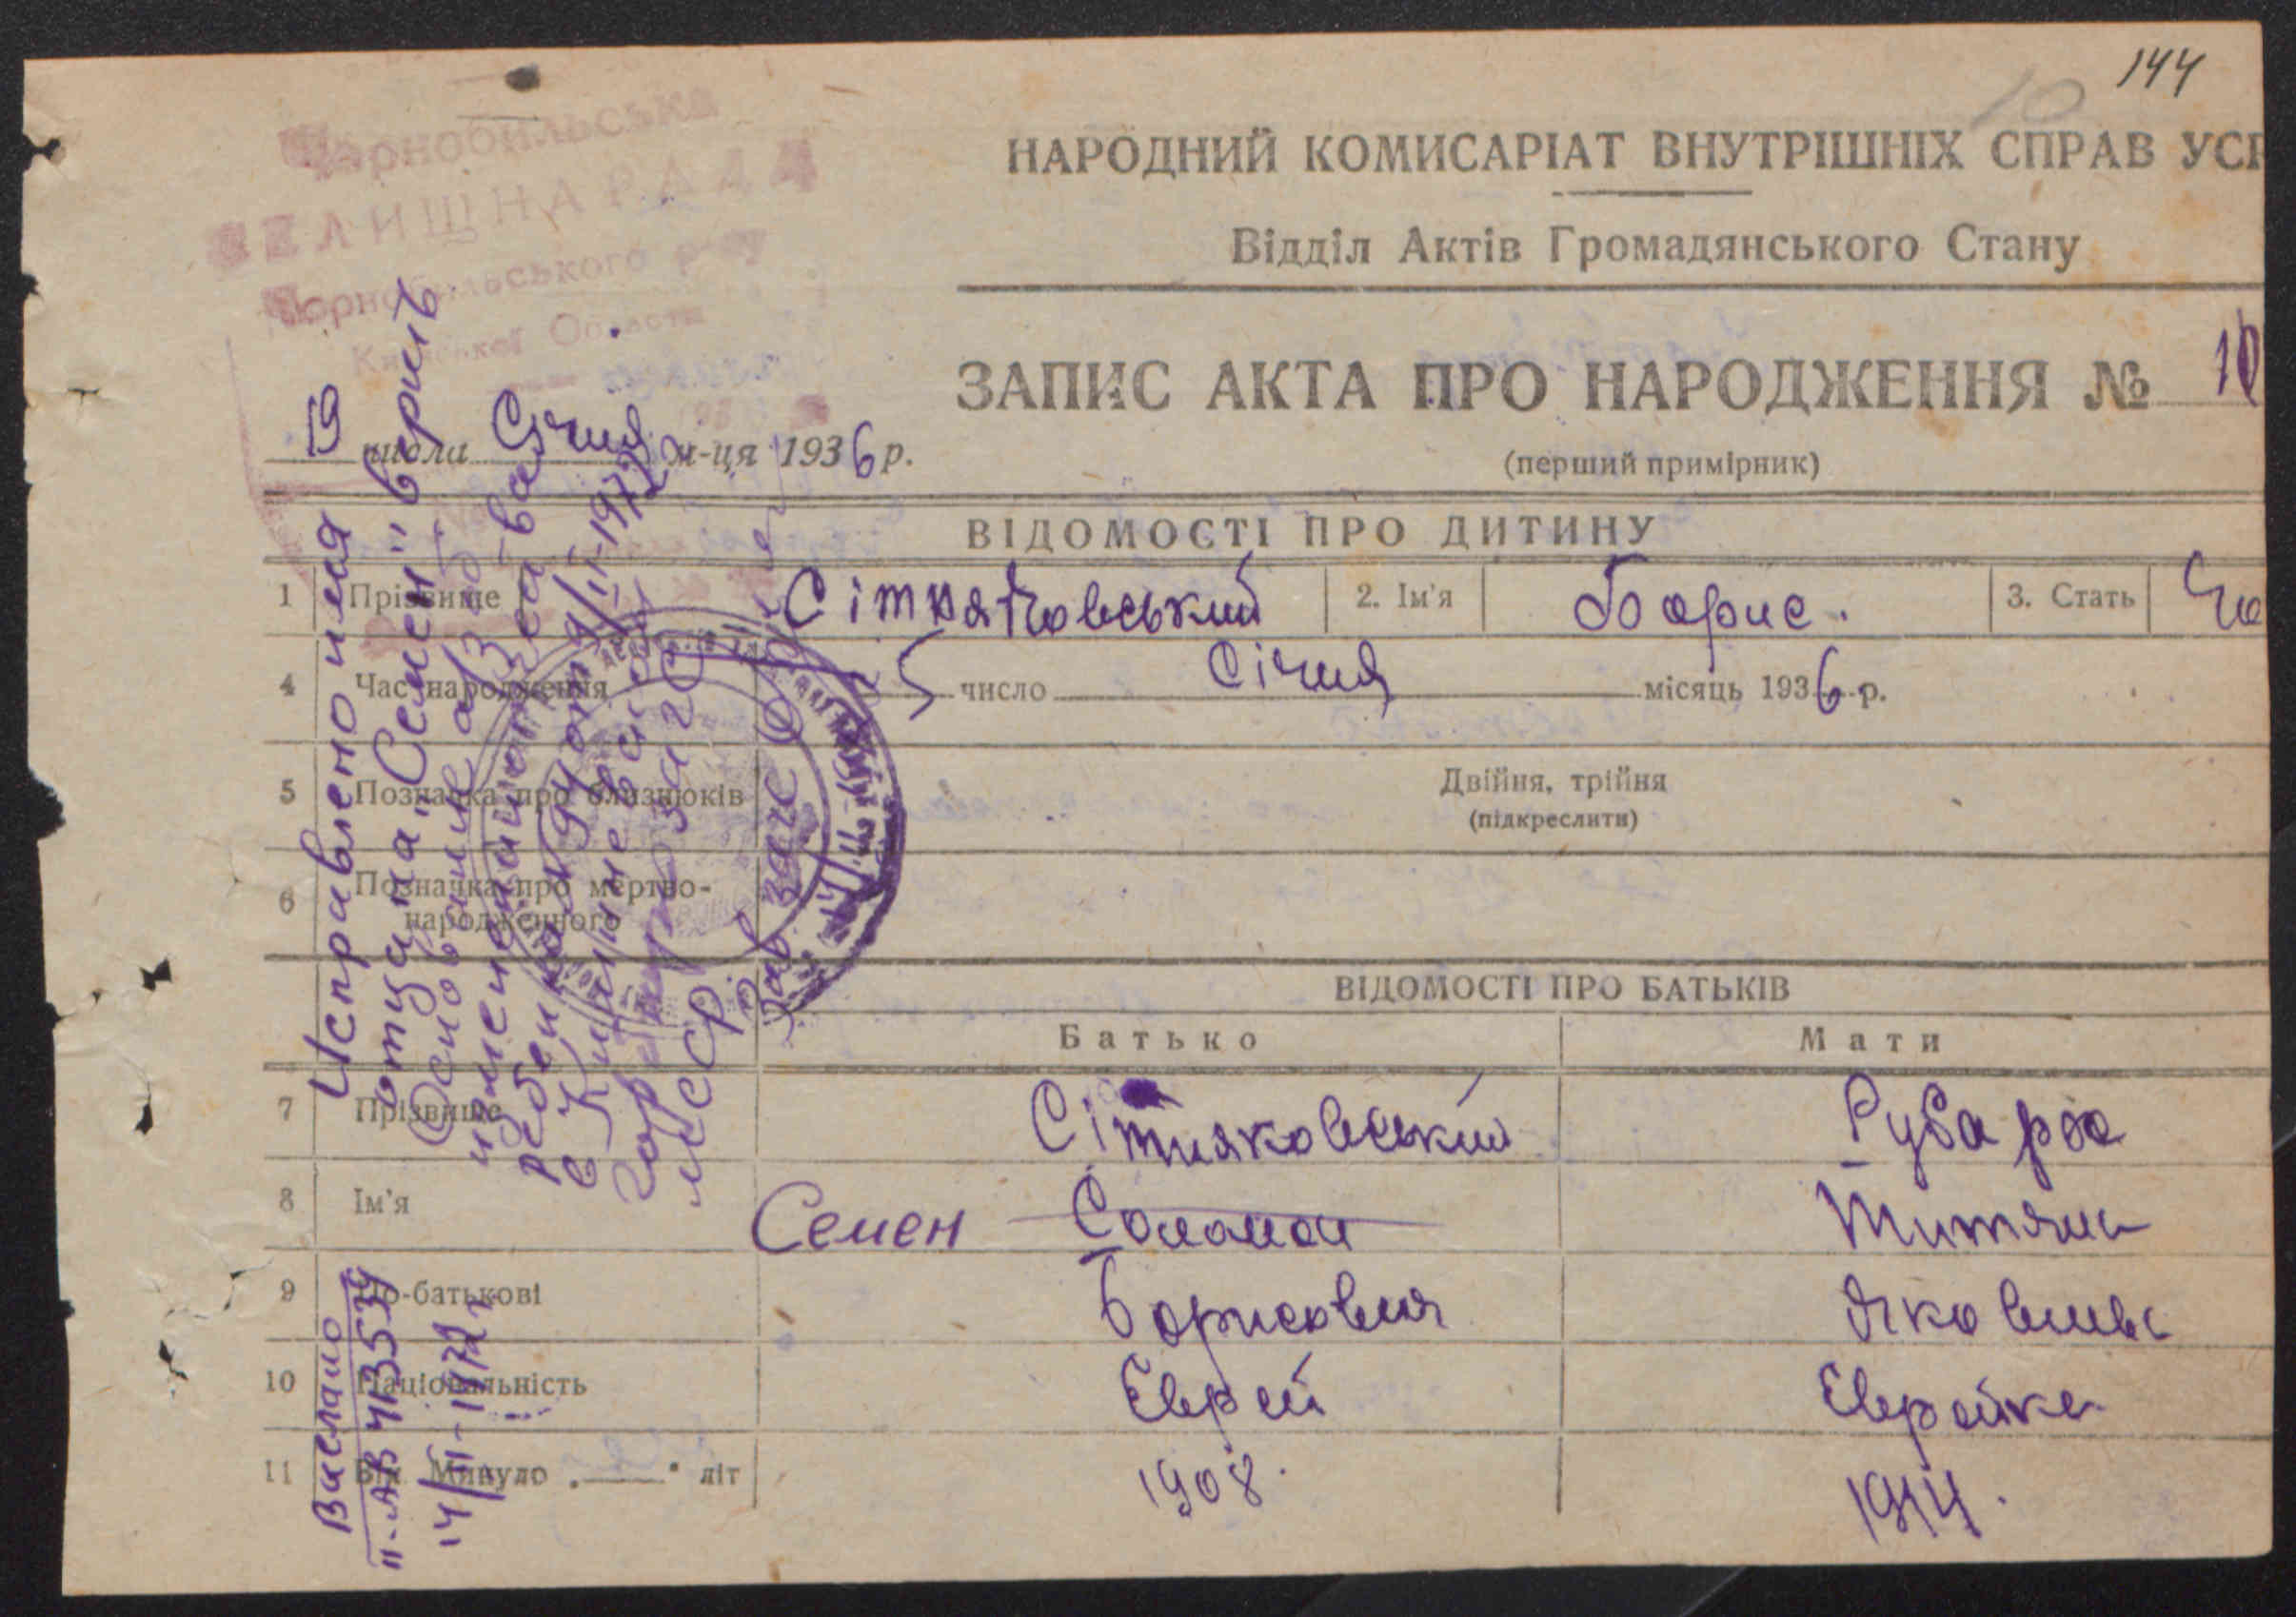 144
10
Чорнобильська
СЕЛИЩНА РАДА
Чорнобильського р-ну
Київської Области
НАРОДНИЙ КОМИСАРІАТ ВНУТРІШНІХ СПРАВ УСР
Відділ Актів Громадянського Стану
ЗАПИС АКТА ПРО НАРОДЖЕННЯ № 10
(перший примірник)
19 числа Січня м-ця 1936 р.
ВІДОМОСТІ ПРО ДИТИНУ
1 Прізвище Сітняковський 2. Ім'я Борис. 3. Стать Чо
4 Час народження 5 число Січня місяць 1936 р.
5 Позначка про близнюків Двійня, трійня
(підкреслити)
6 Позначка про мертво-
народженного
ВІДОМОСТІ ПРО БАТЬКІВ
Батько Мати
7 Прізвище Сітняковський
8 Ім'я Семен Соломон
9 По-батькові Борисович Яковлевн
10 Національність Еврей Еврейка
11 Вік. Минуло „ — " літ 1908. 1914.
Исправлено имя
отца на "Семен" верить
Основание а/з об
ребенка
МССР.
Выслано
II-АВ 413534
14/II-1972 г.